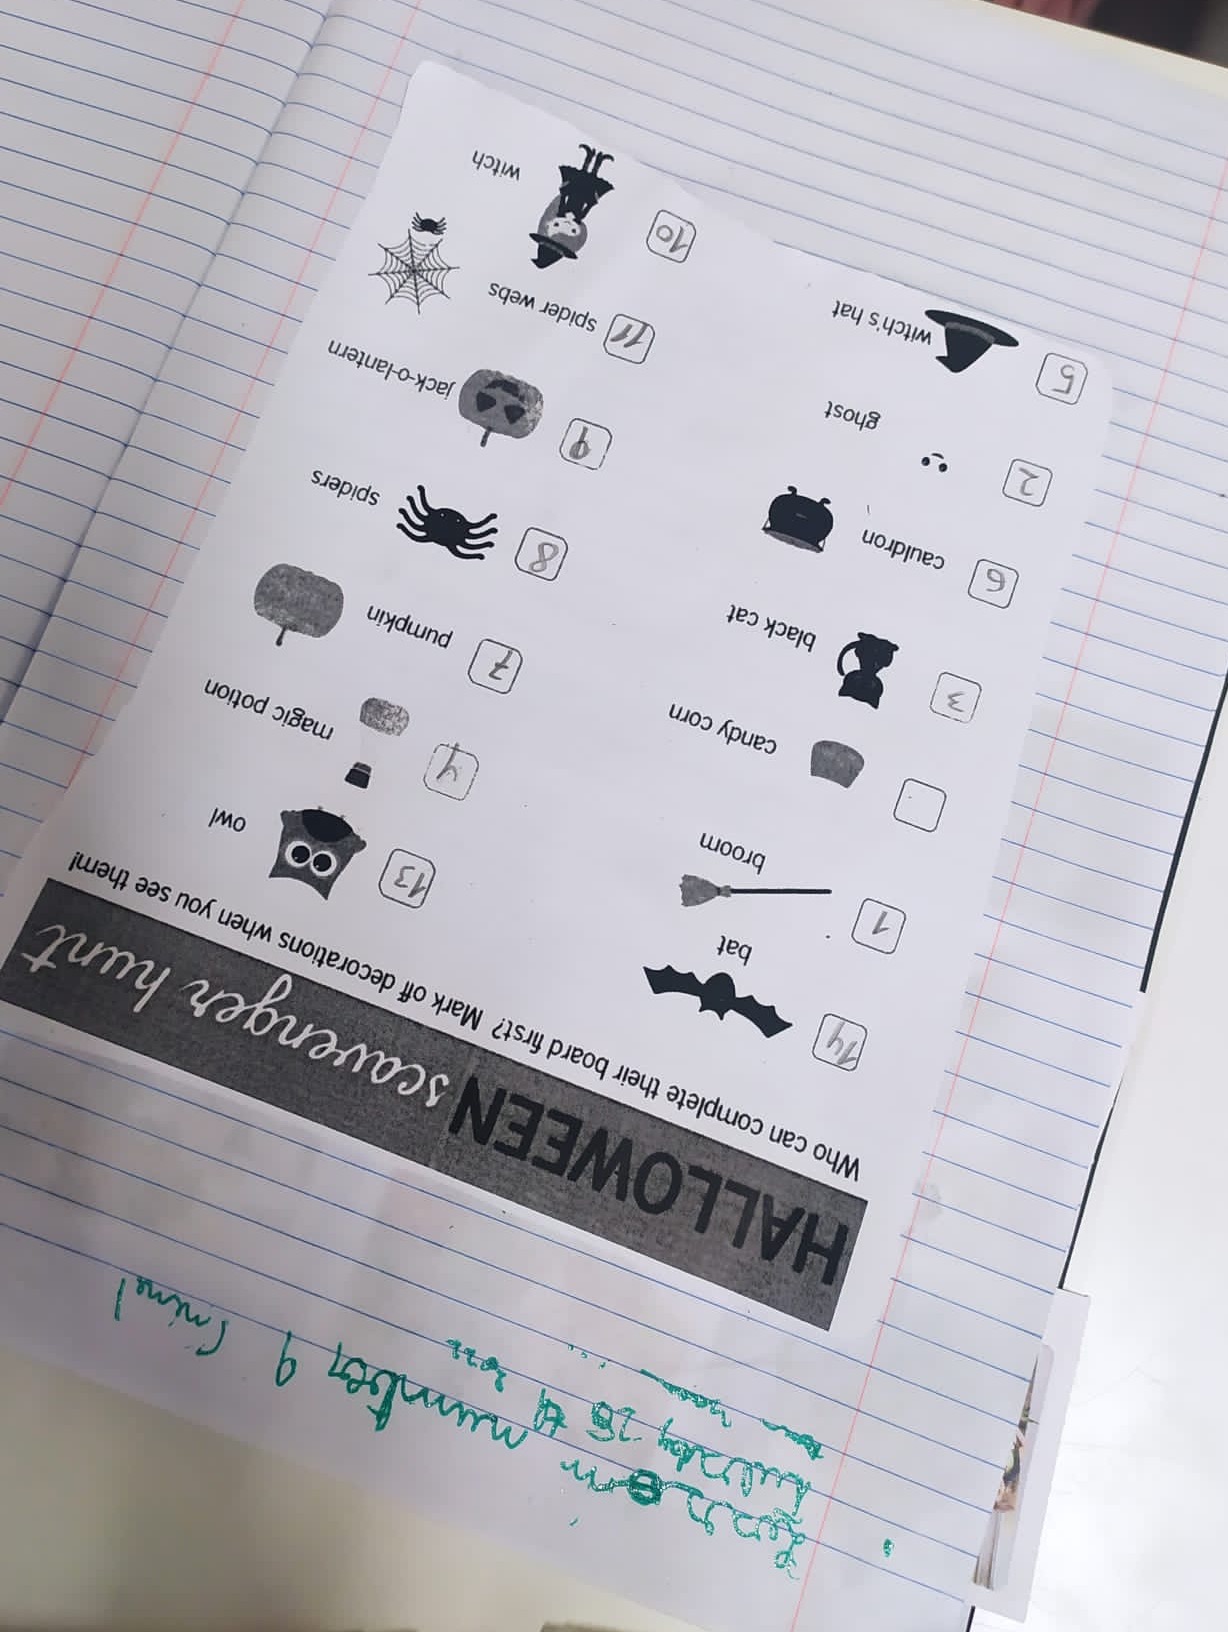 Lesson number 9 (nine)
25 th
HALLOWEEN scavenger hunt
Who can complete their board first? Mark off decorations when you see them!
14 bat
13 owl
1 broom
4 magic potion
candy corn
7 pumpkin
3 black cat
8 spiders
6 cauldron
9 jack-o-lantern
2 ghost
11 spider webs
5 witch's hat
10 witch